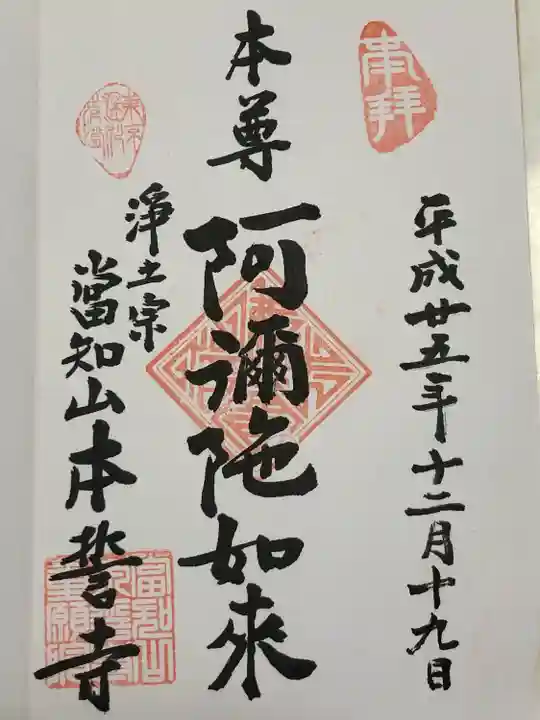 奉拝
平成廿五年十二月十九日
本尊
阿彌陀如來
浄土宗
當知山本誓寺